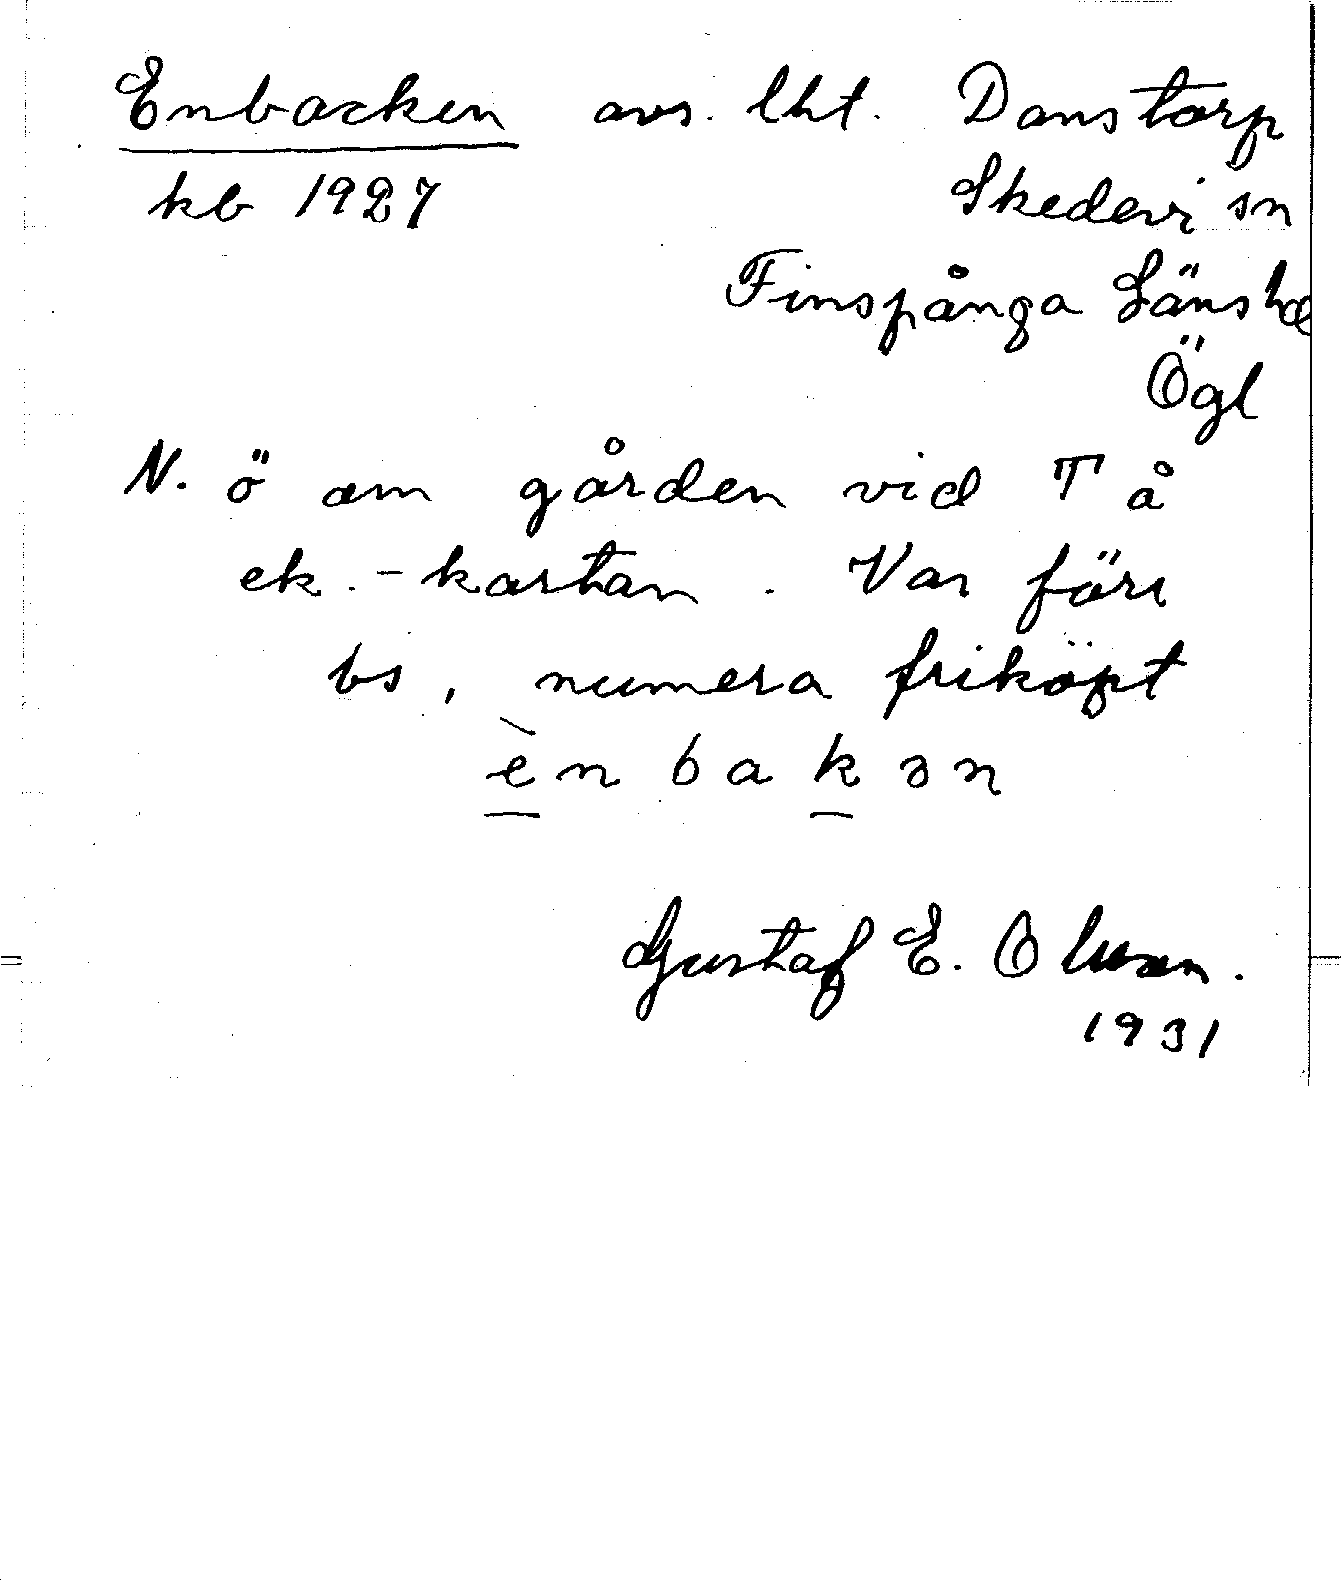 Enbacken avs. lht. Danstorp
kb 1927 Skedevi sn
Finspånga Länshd
Ögl
N. ö om gården vid T å
ek.-kartan. Var förr
bs, numera friköpt
ènbakən
Gustaf E. Olsson.
1931